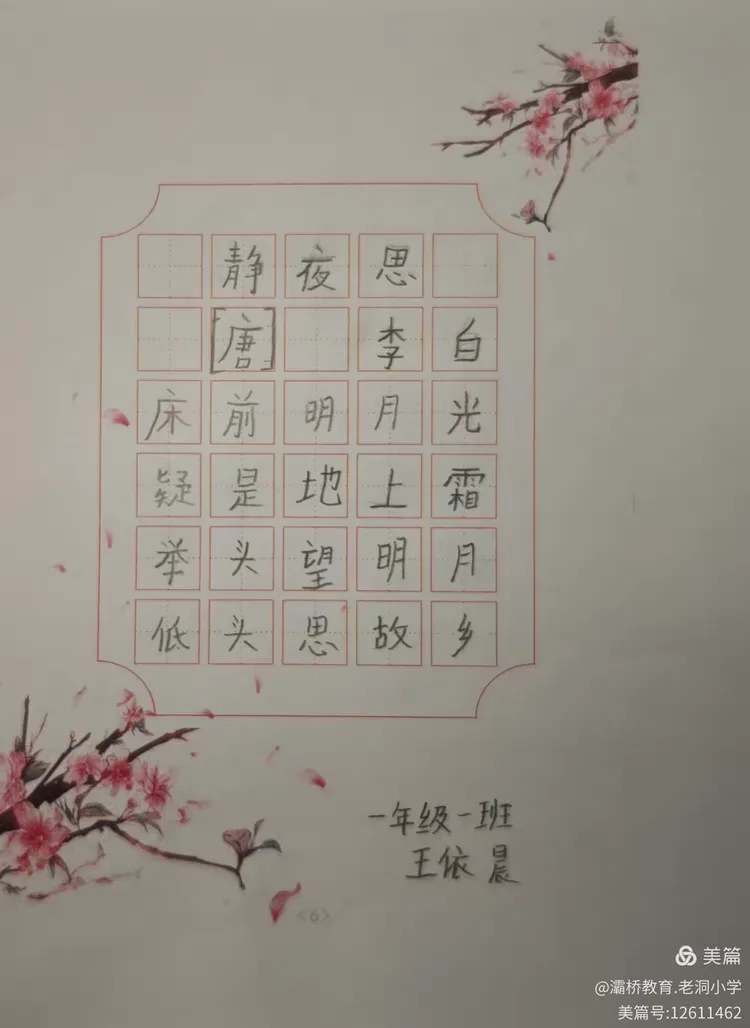 静夜思
[唐] 李白
床前明月光
疑是地上霜
举头望明月
低头思故乡
一年级一班
王依晨
<6>
美篇
@灞桥教育.老洞小学
美篇号:12611462